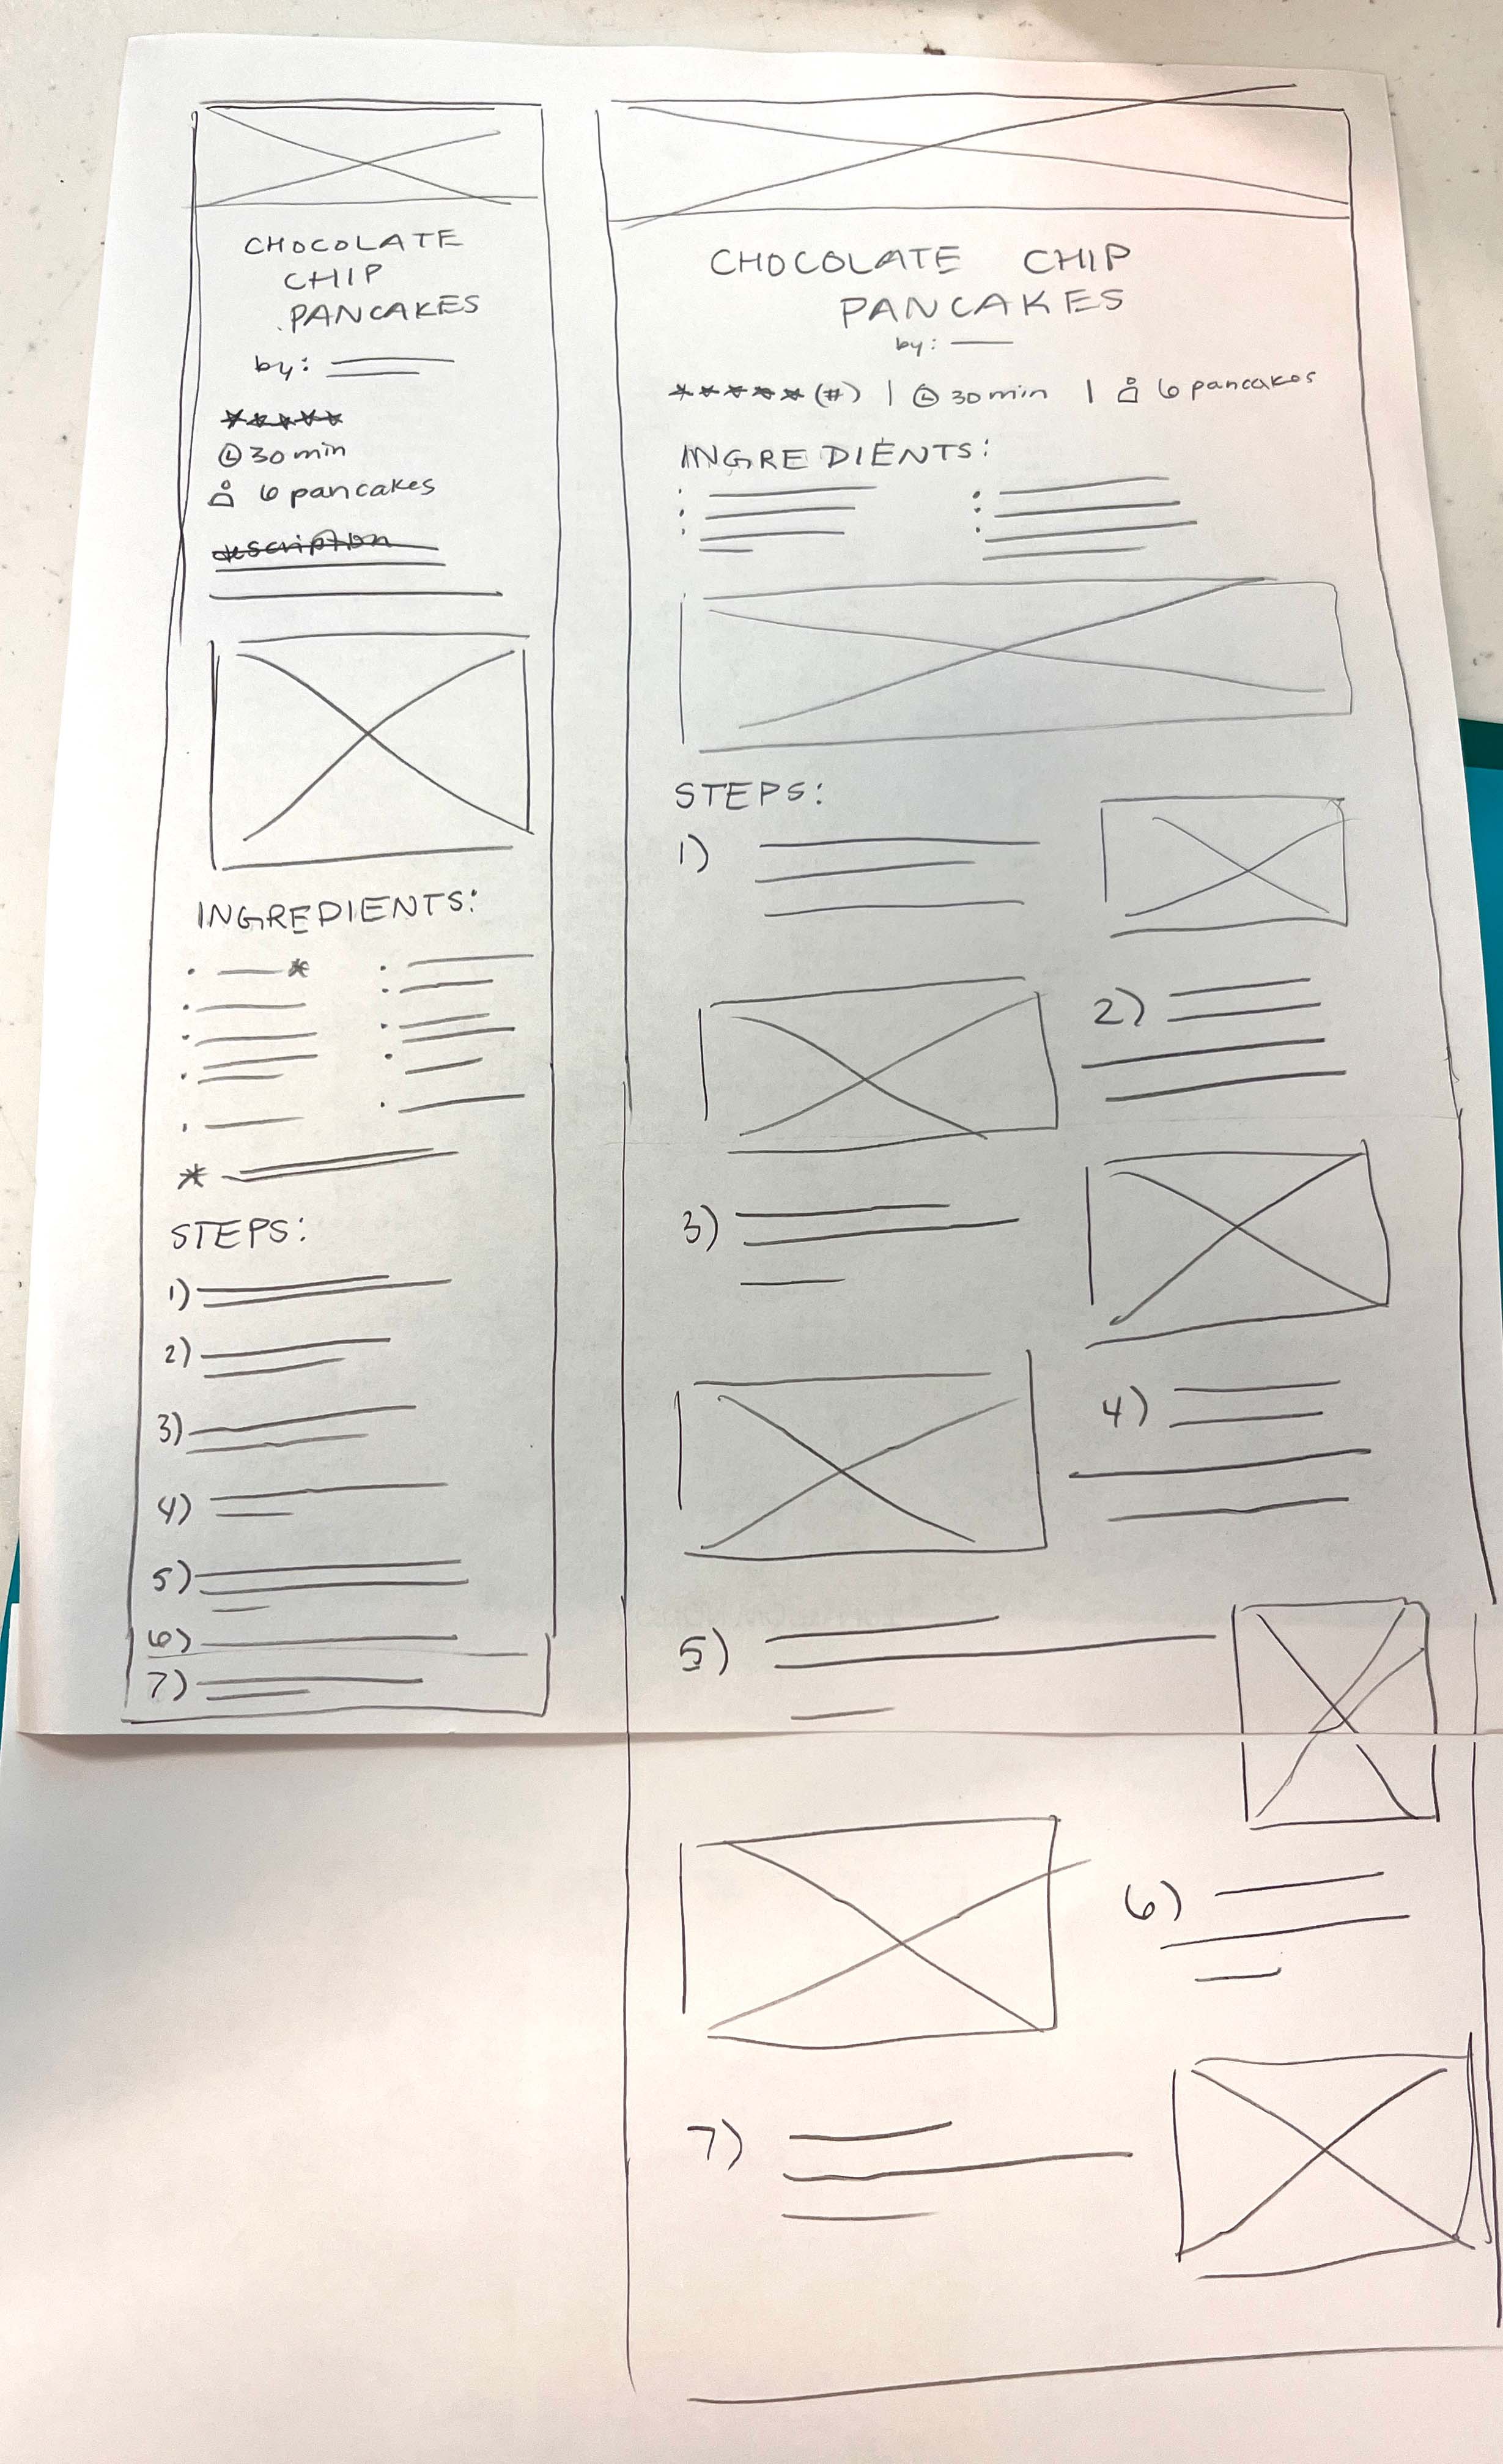 CHOCOLATE
CHIP
PANCAKES
by:
*****
30 min
6 pancakes
description
INGREDIENTS:
*
*
STEPS:
1)
2)
3)
4)
5)
6)
7)
CHOCOLATE CHIP
PANCAKES
by:
*****(#) | 30 min | 6 pancakes
INGREDIENTS:
STEPS:
1)
2)
3)
4)
5)
6)
7)